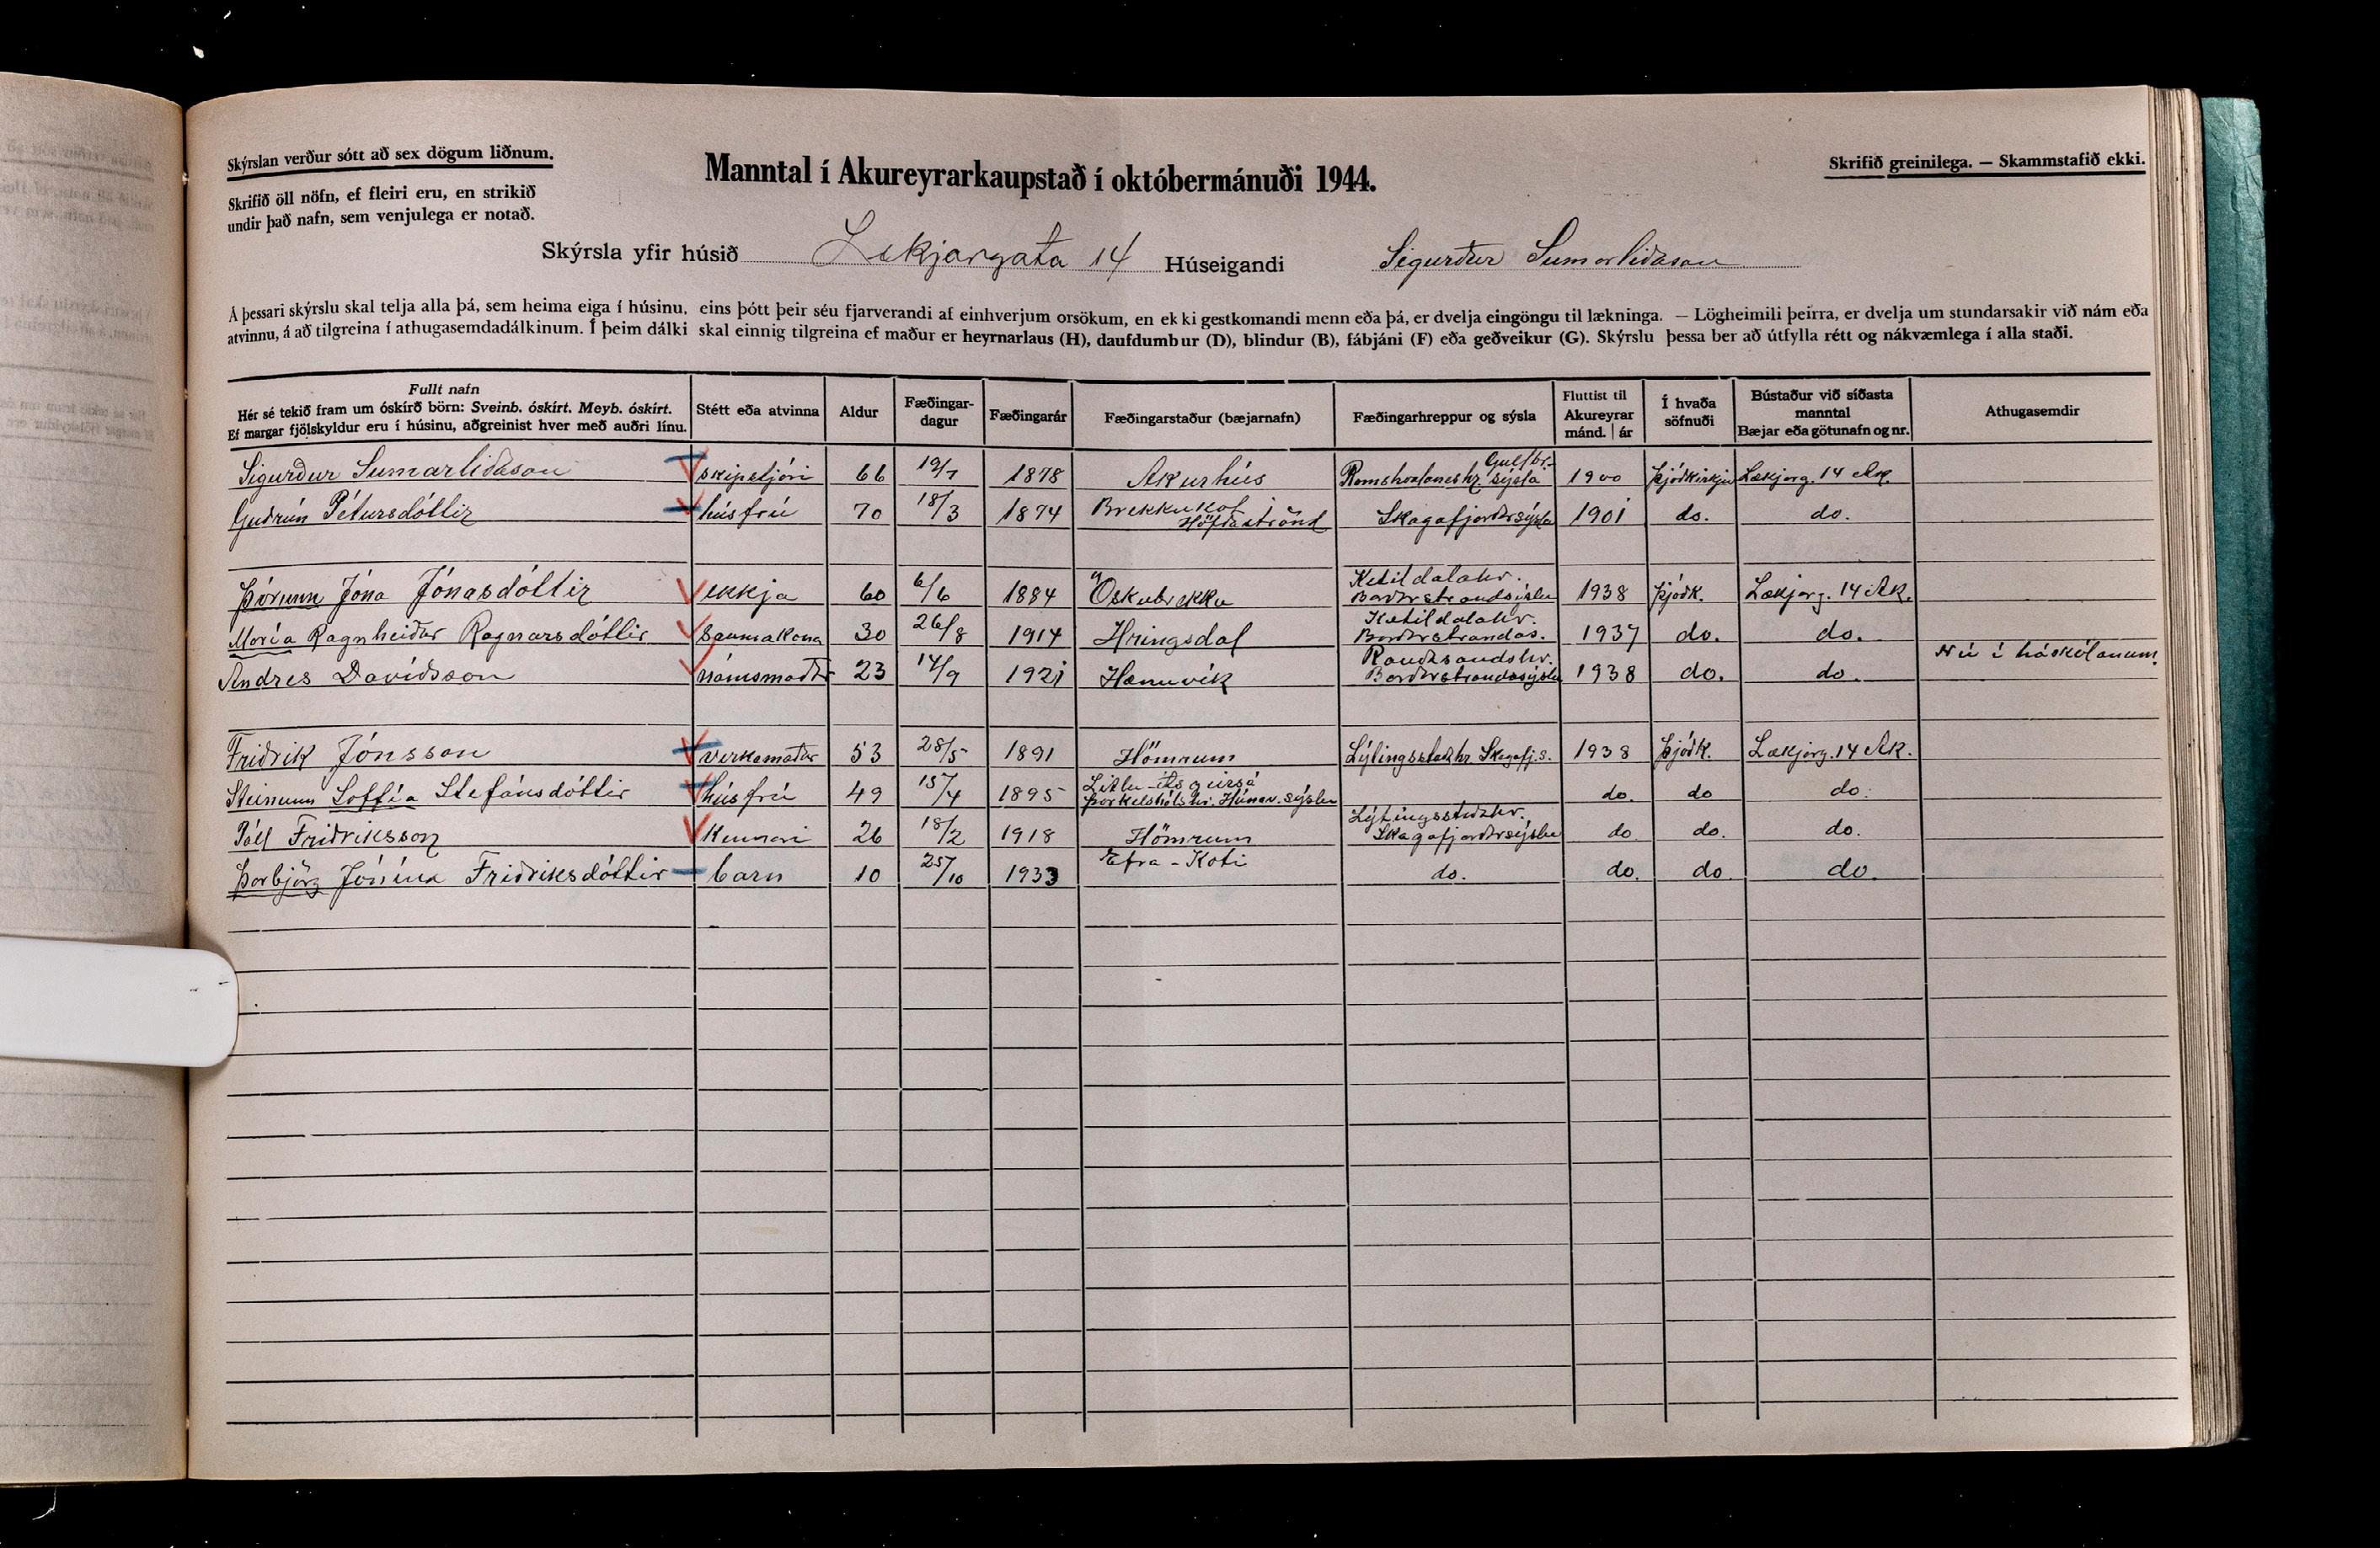 Skýrslan verður sótt að sex dögum liðnum.
Skrifið öll nöfn, ef fleiri eru, en strikið
undir það nafn, sem venjulega er notað.
Manntal í Akureyrarkaupstað í októbermánuði 1944.
Skrifið greinilega. — Skammstafið ekki.
Skýrsla yfir húsið Lækjargata 14 Húseigandi Sigurður Sumarliðason
Á þessari skýrslu skal telja alla þá, sem heima eiga í húsinu, eins þótt þeir séu fjarverandi af einhverjum orsökum, en ekki gestkomandi menn eða þá, er dvelja eingöngu til lækninga. — Lögheimili þeirra, er dvelja um stundarsakir við nám eða
atvinnu, á að tilgreina í athugasemdadálkinum. Í þeim dálki skal einnig tilgreina ef maður er heyrnarlaus (H), daufdumbur (D), blindur (B), fábjáni (F) eða geðveikur (G). Skýrslu þessa ber að útfylla rétt og nákvæmlega í alla staði.
Fullt nafn
Hér sé tekið fram um óskírð börn: Sveinb. óskírt. Meyb. óskírt.
Ef margar fjölskyldur eru í húsinu, aðgreinist hver með auðri línu.
Stétt eða atvinna
Aldur
Fæðingar-
dagur
Fæðingarár
Fæðingarstaður (bæjarnafn)
Fæðingarhreppur og sýsla
Fluttist til
Akureyrar
mánd. | ár
Í hvaða
söfnuði
Bústaður við síðasta
manntal
Bæjar eða götunafn og nr.
Athugasemdir
Sigurður Sumarliðason skipstjóri 66 19/7 1878 Akurhús Romshvalaneshr. Gullbr. sýsla 1900 Þjóðkirkju Lækjarg. 14 Ak.
Guðrún Pétursdóttir húsfrú 70 18/3 1874 Brekkukot Höfðaströnd Skagafjarðarsýsla 1901 do. do.
Þórunn Jóna Jónasdóttir ekkja 60 6/6 1884 Öskubrekku Ketildalahr. Barðarstrandsýslu 1938 Þjóðk. Lækjarg. 14 Ak.
María Ragnheiður Ragnarsdóttir Saumakona 30 26/8 1914 Hringsdal Ketildalahr. Barðarstrandas. 1937 do. do.
Andres Davíðsson námsmaður 23 14/9 1921 Hænuvík Rauðasandshr. Barðarstrandasýslu 1938 do. do. Nú í háskólanum.
Friðrik Jónsson verkamaður 53 28/5 1891 Hömrum Lýtingsstaðahr. Skagafj.s. 1938 Þjóðk. Lækjarg. 14 Ak.
Steinunn Soffía Stefánsdóttir húsfrú 49 15/4 1895 Litlu-Ásgeirsá Þorkelshólshr. Húnav. sýslu do. do do.
Páll Friðriksson Kennari 26 18/2 1918 Hömrum Lýtingsstaðahr. Skagafjarðarsýslu do do. do.
Þorbjörg Jónína Friðriksdóttir barn 10 25/10 1933 Efra-Koti do. do. do do.